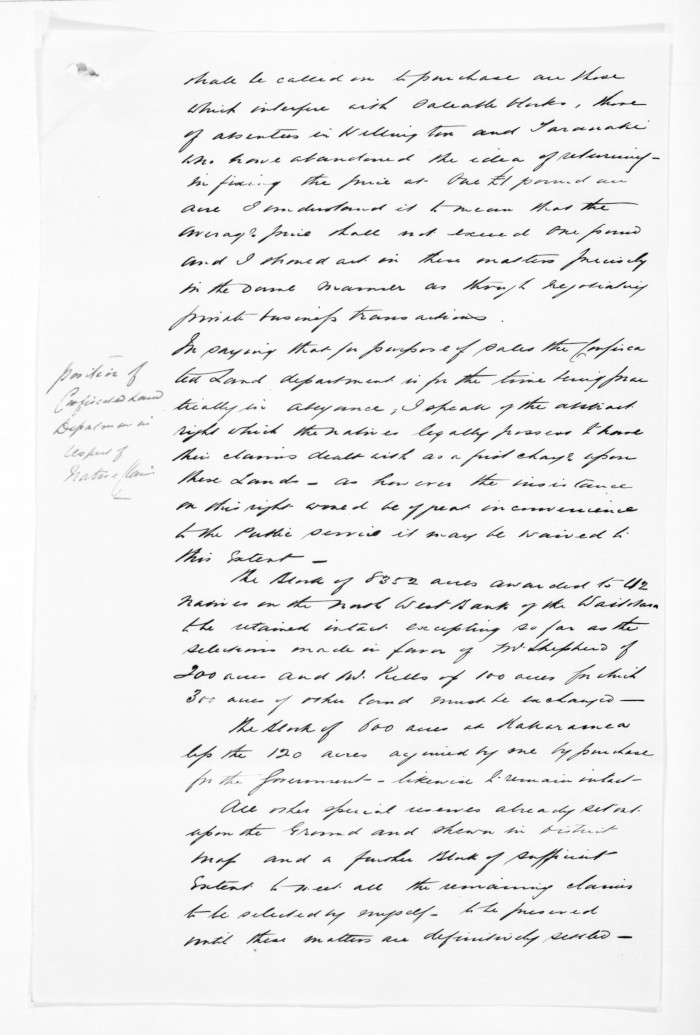 shall be called on to purchase are those
which interfere with saleable blocks, those
of absentees in Wellington and Taranaki
who have abandoned the idea of returning -
In fixing the price at One £1 pound an
acre I understand it to mean that the
average price shall not exceed one pound
and I should act in these matters precisely
in the same manner as though negotiating
private business transactions.
In saying that for purpose of sales the Confisca
ted Land department is for the time being prac
tically in abeyance, I speak of the abstract
right which the natives legally possess to have
their claims dealt with as a first charge upon
these Lands - as however the insistance
on this right would be of great inconvenience
to the Public service it may be waived to
this Extent -
position of
Confiscated Land
Department in
respect of
Native Claim
The Block of 8352 acres awarded to 42
Natives on the North West Bank of the Waitotara
to be retained intact excepting so far as the
selections made in favor of Mr Shepherd of
200 acres and Mr. Kells of 100 acres for which
300 acres of other land must be exchanged -
The Block of 600 acres at Kakaramea
less the 120 acres acquired by me by purchase
for the Government - likewise to remain intact -
All other special reserves already set out
upon the Ground and shewn in District
Map and a further Block of sufficient
Extent to meet all the remaining claims
to be selected by myself - to be preserved
until these matters are definitively settled -